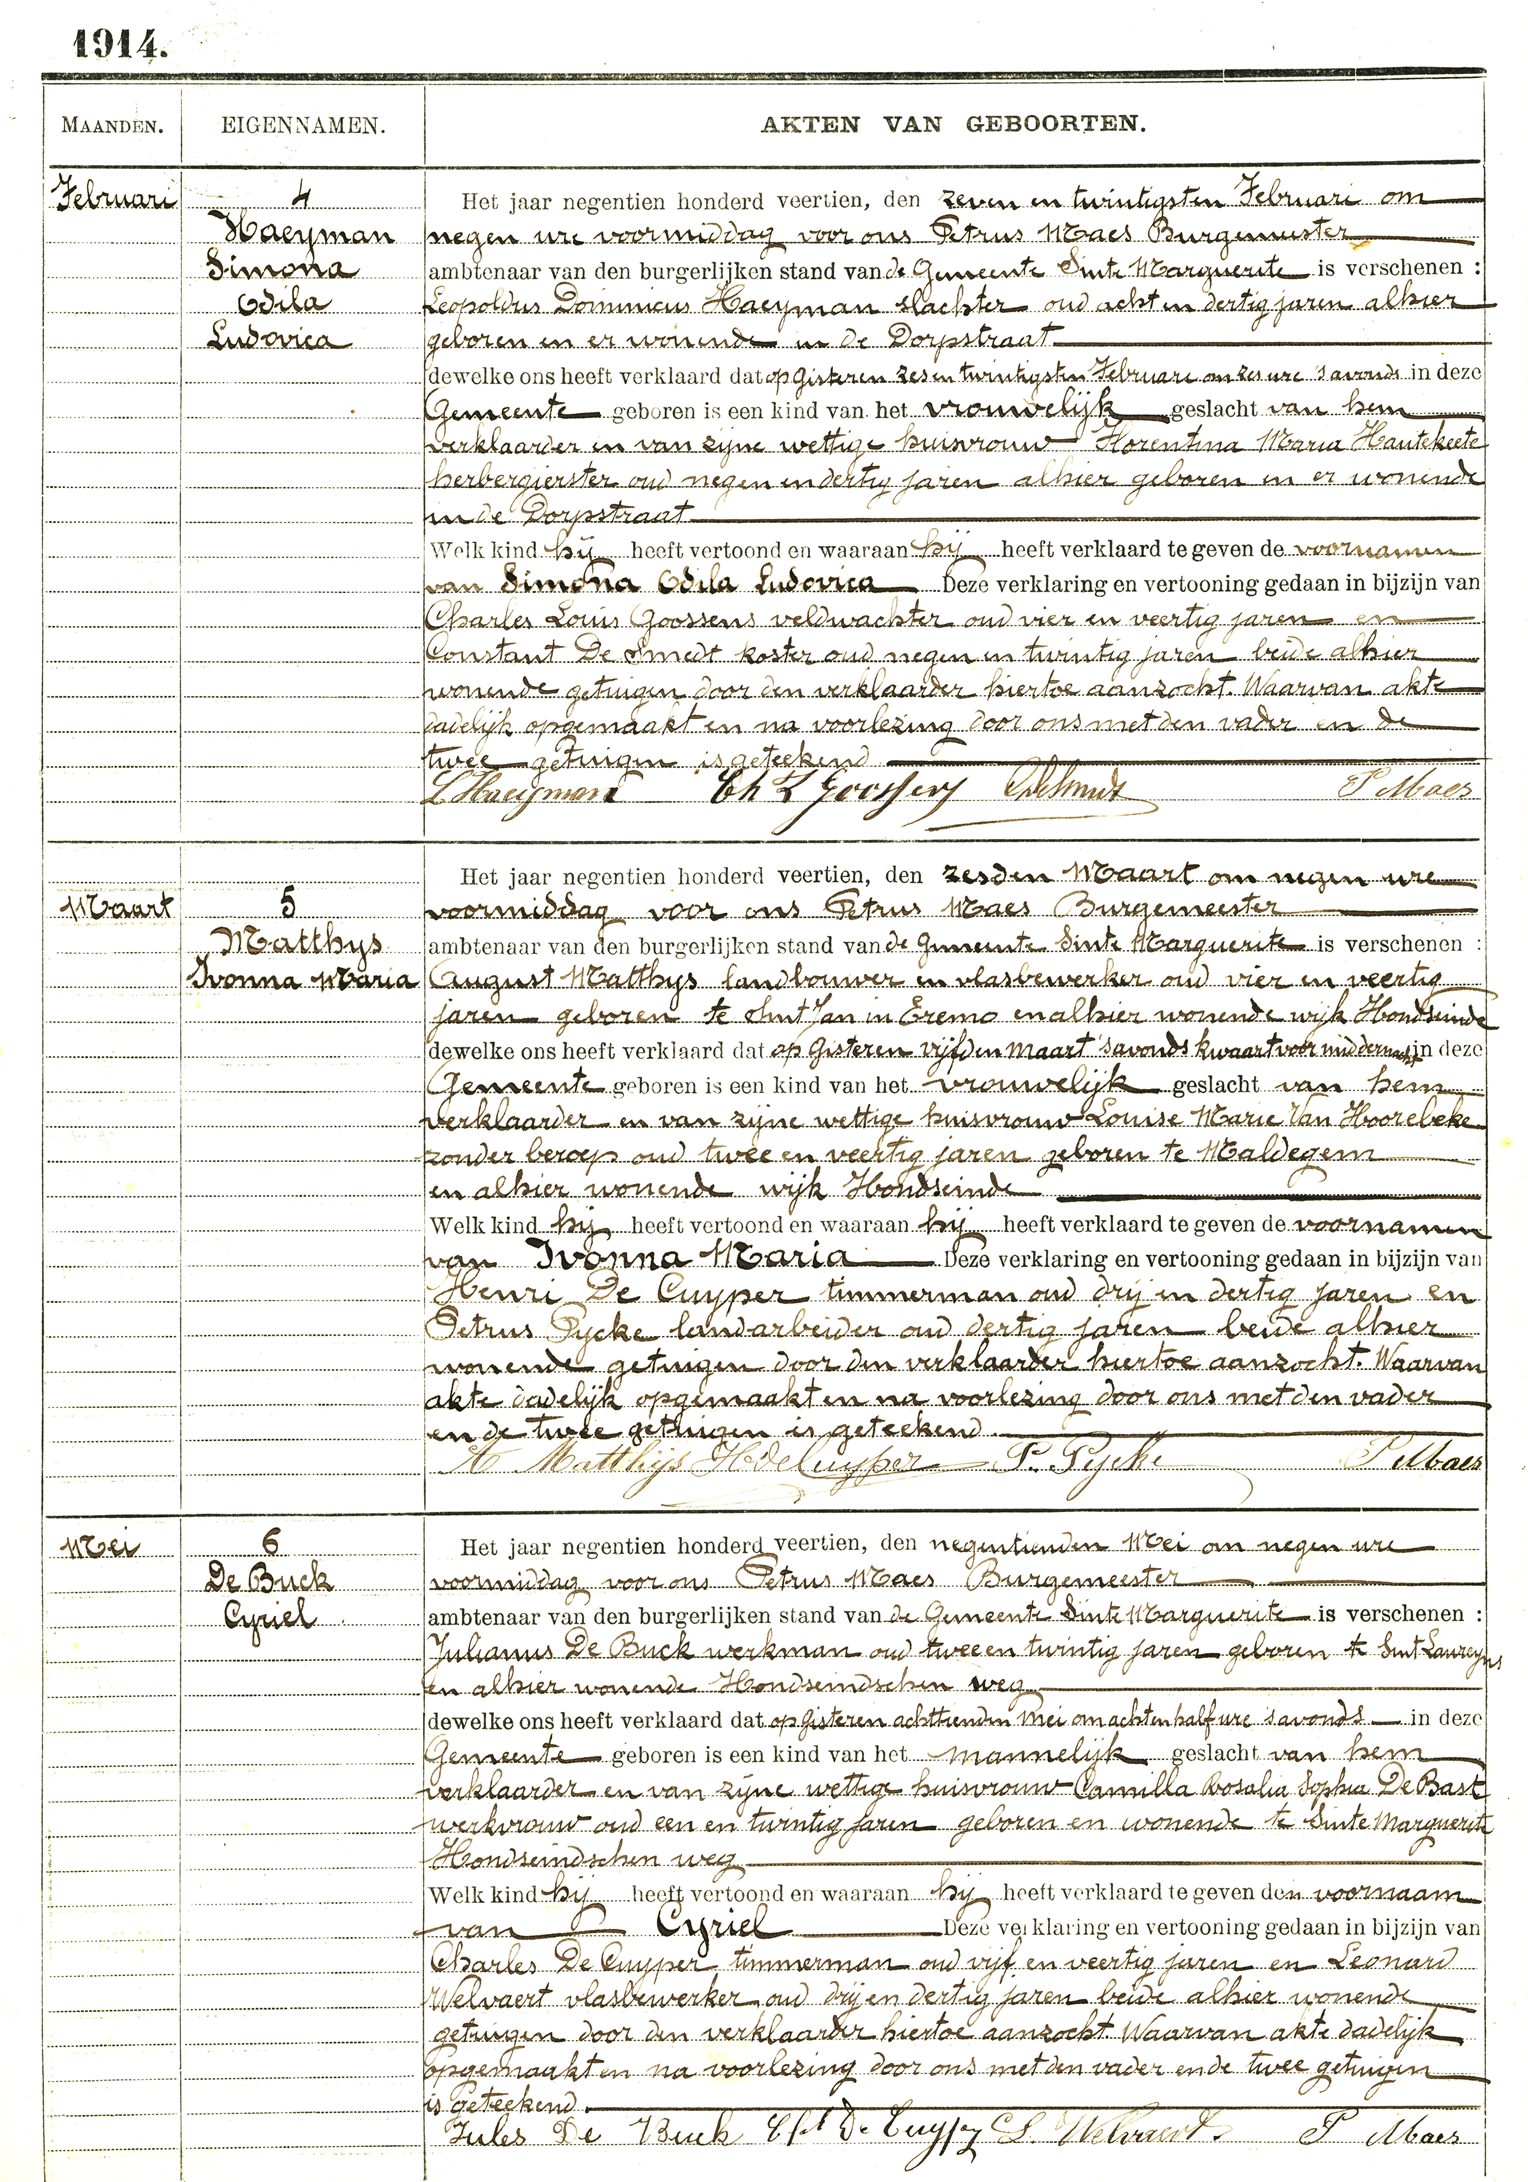 1914.
MAANDEN. EIGENNAMEN. AKTEN VAN GEBOORTEN.
Februari
4
Haeyman
Simona
Odila
Ludovica
Het jaar negentien honderd veertien, den zeven en twintigsten Februari om
negen ure voormiddag voor ons Petrus Maes Burgemeester
ambtenaar van den burgerlijken stand van de Gemeente Sinte Marguerite is verschenen :
Leopoldus Dominicus Haeyman slachter oud acht en dertig jaren alhier
geboren en er wonende in de Dorpstraat
dewelke ons heeft verklaard dat op gisteren zes en twintigsten Februari om zes ure 's avonds in deze
Gemeente geboren is een kind van het vrouwelijk geslacht van hem
verklaarder en van zijne wettige huisvrouw Florentina Maria Hautekeete
herbergierster oud negen en dertig jaren alhier geboren en er wonende
in de Dorpstraat
Welk kind hij heeft vertoond en waaraan hij heeft verklaard te geven de voornamen
van Simona Odila Ludovica Deze verklaring en vertooning gedaan in bijzijn van
Charles Louis Goossens veldwachter oud vier en veertig jaren en
Constant De Smedt koster oud negen en twintig jaren beide alhier
wonende getuigen door den verklaarder hiertoe aanzocht. Waarvan akte
dadelijk opgemaakt en na voorlezing door ons met den vader en de
twee getuigen is geteekend
L Haeyman Ch L Goossens CDeSmedt P Maes
Maart
5
Matthys
Ivonna Maria
Het jaar negentien honderd veertien, den zesden Maart om negen ure
voormiddag voor ons Petrus Maes Burgemeester
ambtenaar van den burgerlijken stand van de Gemeente Sinte Marguerite is verschenen :
August Matthys landbouwer en vlasbewerker oud vier en veertig
jaren geboren te Sint Jan in Eremo en alhier wonende wijk Hondseinde
dewelke ons heeft verklaard dat op gisteren vijfden Maart 's avonds kwaart voor middernacht in deze
Gemeente geboren is een kind van het vrouwelijk geslacht van hem
verklaarder en van zijne wettige huisvrouw Louise Marie Van Hoorebeke
zonder beroep oud twee en veertig jaren geboren te Maldegem
en alhier wonende wijk Hondseinde
Welk kind hij heeft vertoond en waaraan hij heeft verklaard te geven de voornamen
van Ivonna Maria Deze verklaring en vertooning gedaan in bijzijn van
Henri De Cuyper timmerman oud drij en dertig jaren en
Petrus Pycke landarbeider oud dertig jaren beide alhier
wonende getuigen door den verklaarder hiertoe aanzocht. Waarvan
akte dadelijk opgemaakt en na voorlezing door ons met den vader
en de twee getuigen is geteekend
A Matthijs H deCuyper P. Pycke P Maes
Mei
6
De Buck
Cyriel
Het jaar negentien honderd veertien, den negentienden Mei om negen ure
voormiddag voor ons Petrus Maes Burgemeester
ambtenaar van den burgerlijken stand van de Gemeente Sinte Marguerite is verschenen :
Julianus De Buck werkman oud twee en twintig jaren geboren te Sint Laureyns
en alhier wonende Hondseindschen weg
dewelke ons heeft verklaard dat op gisteren achttienden Mei om achten half ure 's avonds in deze
Gemeente geboren is een kind van het mannelijk geslacht van hem
verklaarder en van zijne wettige huisvrouw Camilla Rosalia Sophia De Bast
werkvrouw oud een en twintig jaren geboren en wonende te Sinte Marguerite
Hondseindschen weg
Welk kind hij heeft vertoond en waaraan hij heeft verklaard te geven den voornaam
van Cyriel Deze verklaring en vertooning gedaan in bijzijn van
Charles De Cuyper timmerman oud vijf en veertig jaren en Leonard
Welvaert vlasbewerker oud drij en dertig jaren beide alhier wonende
getuigen door den verklaarder hiertoe aanzocht. Waarvan akte dadelijk
opgemaakt en na voorlezing door ons met den vader en de twee getuigen
is geteekend
Jules De Buck Ch De Cuyper L. Welvaert. P Maes